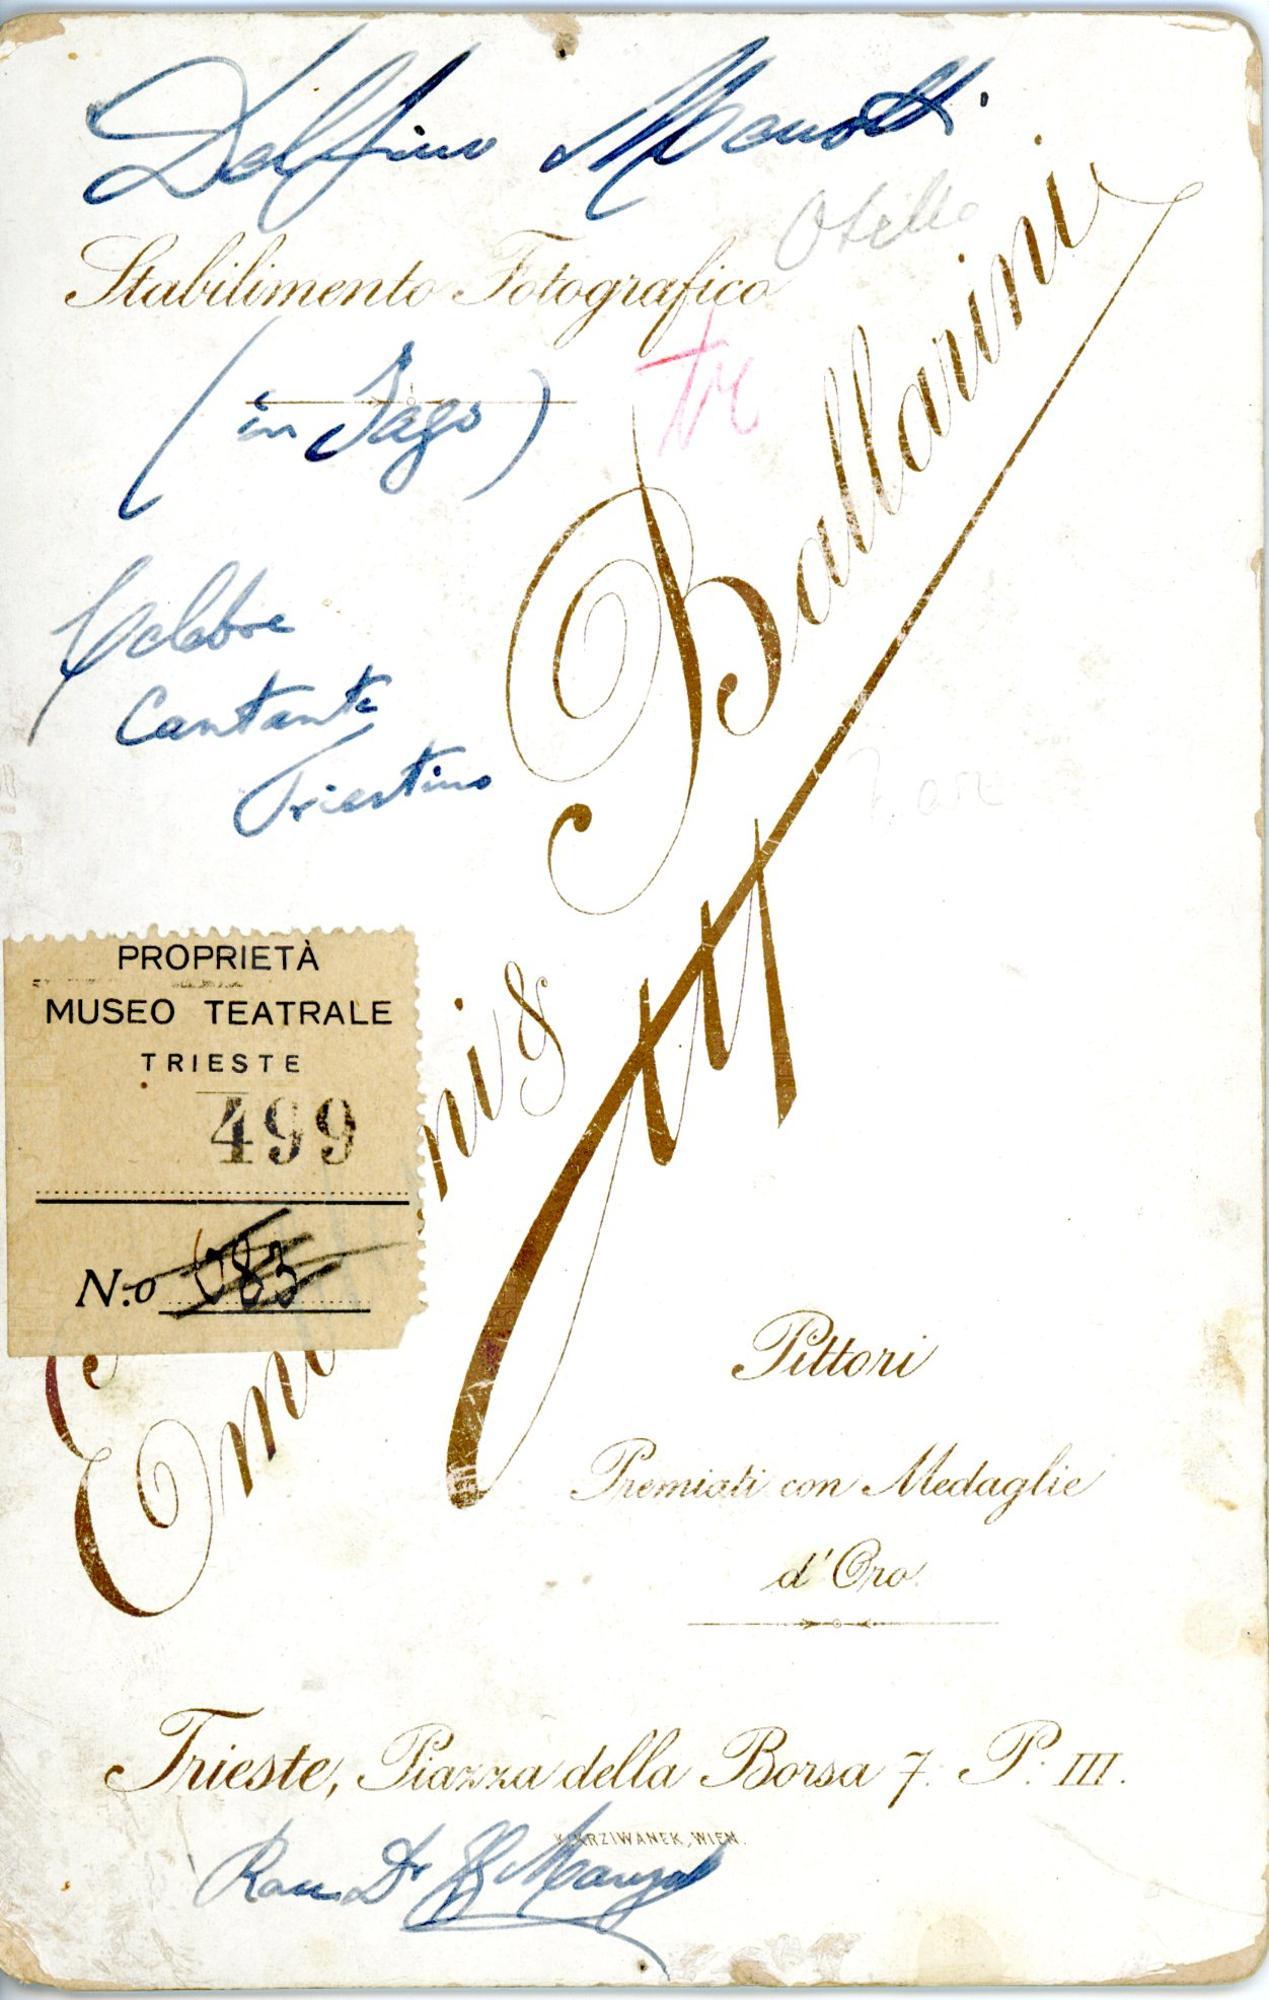 Delfino Menotti
Otello
Stabilimento Fotografico
(in Jago)
Celebre
Cantante
Triestino
Ballarini
PROPRIETÀ
MUSEO TEATRALE
TRIESTE
499
N.o 683
Pittori
Premiati con Medaglie
d'Oro.
Trieste, Piazza della Borsa 7. P. III.
K. KRZIWANEK, WIEN.